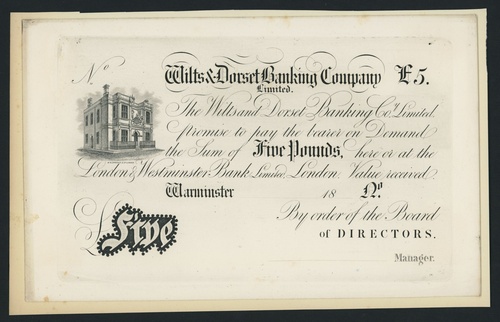 No
Wilts & Dorset Banking Company £5.
Limited.
The Wilts and Dorset Banking Coy. Limited.
promise to pay the bearer on Demand
the Sum of Five Pounds, here or at the
London & Westminster Bank Limited, London. Value received
Warminster 18 No
By order of the Board
of DIRECTORS.
£ Five
Manager.